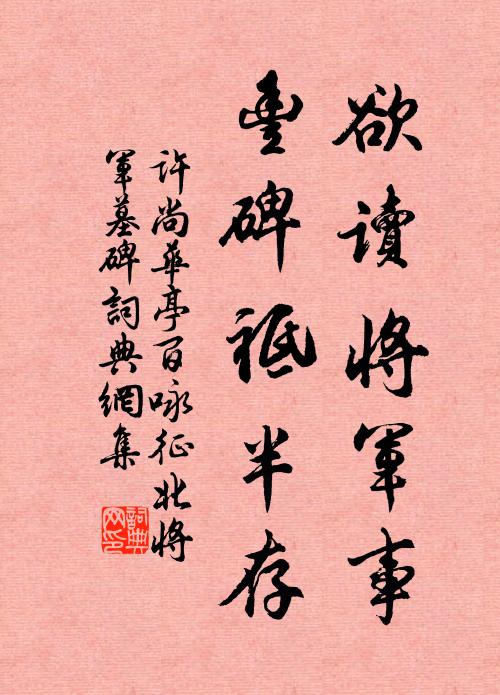 欲讀將軍事
豊碑祗半存
許尚華亭百咏征北將
軍墓碑詞典網集
詞典網印